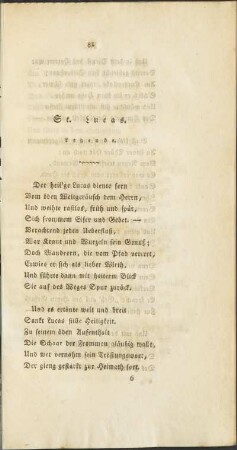 81
St. Lucas.
Legende.
Der heil'ge Lucas diente fern
Vom öden Weltgeräusch dem Herrn,
Und weihte rastlos, früh und spät,
Sich frommem Eifer und Gebet. —
Verachtend jeden Ueberfluß,
War Kraut und Wurzeln sein Genuß;
Doch Wanderern, die vom Pfad verirrt,
Erwies er sich als lieber Wirth,
Und führte dann mit heiterm Blick
Sie auf des Weges Spur zurück.
Und es ertönte weit und breit
Sankt Lucas stille Heiligkeit.
Zu seinem öden Aufenthalt
Die Schaar der Frommen gläubig wallt,
Und wer vernahm sein Tröstungswort,
Der gieng gestärkt zur Heimath fort.
6